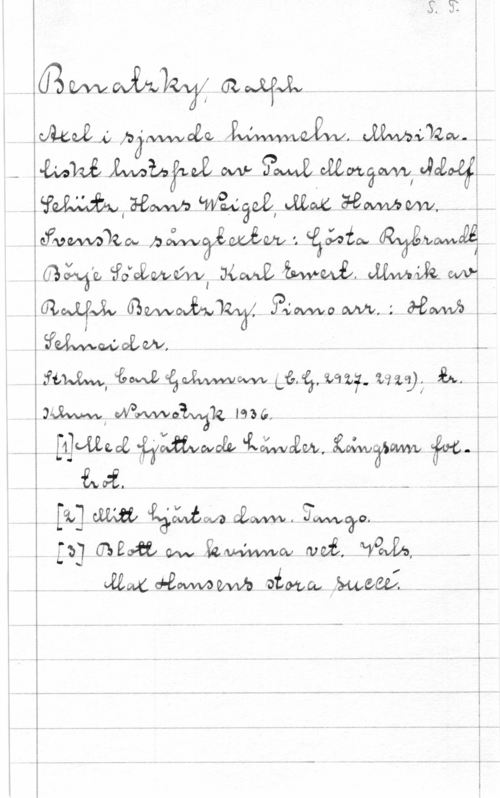 S. T.
Benatzky, Ralph
Axel i sjunde himmeln. Musika-
liskt lustspel av Paul Morgan, Adolf
Schütz, Hans Weigel, Max Hansen.
Svenska sångtexter: Gösta Rybrandt,
Börje Söderén, Karl Ewert. Musik av
Ralph Benatzky. Piano arr. : Hans
Schneider.
Sthlm, Carl Gehrman (C.G. 2927- 2929); tr.
Khvn, Nornotryk 1936.
[1] Med fjättrade händer. Långsam fox-
trot.
[2] Mitt hjärtas dam. Tango.
[3] Blott en kvinna vet. Vals,
Max Hansens stora succé.